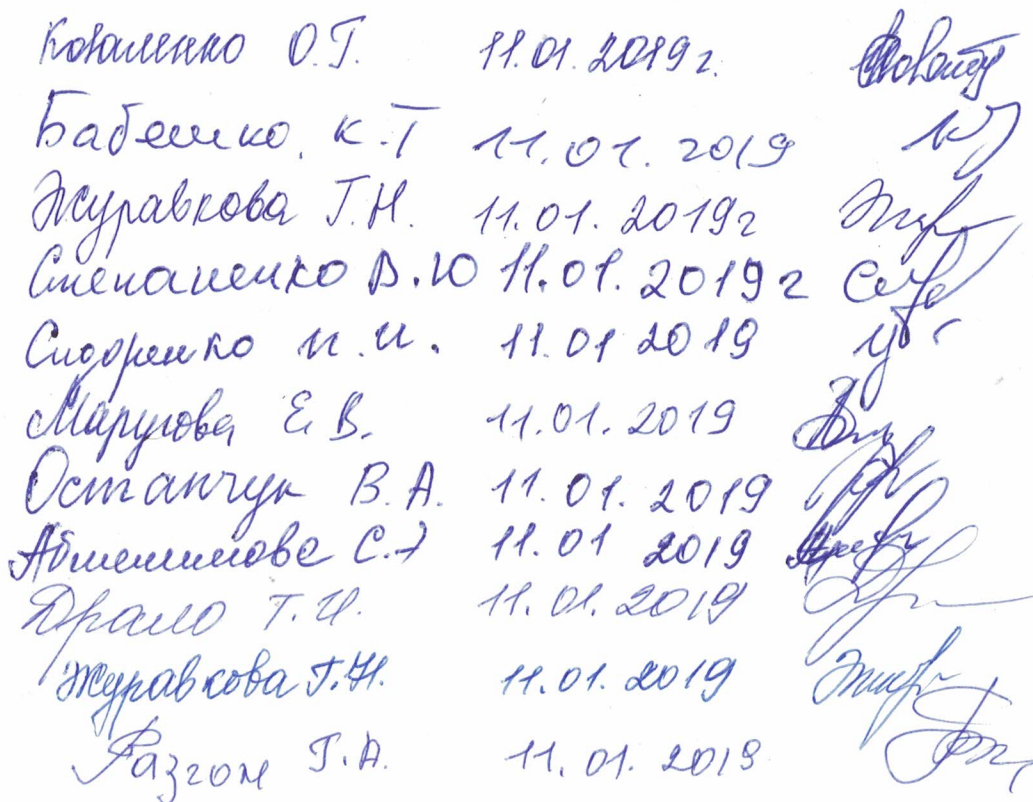 Коваленко О.Г. 11.01.2019г.
Бабешко К.Г 11.01.2019
Журавкова Г.Н. 11.01.2019г
Степаненко В.Ю 11.01.2019г
Сидоренко И.И. 11.01 2019
Е.В. 11.01.2019
Остапчук В.А. 11.01.2019
11.01 2019
Драло Т.И. 11.01.2019
Журавкова Г.Н. 11.01.2019
Разгон Г.А. 11.01.2019